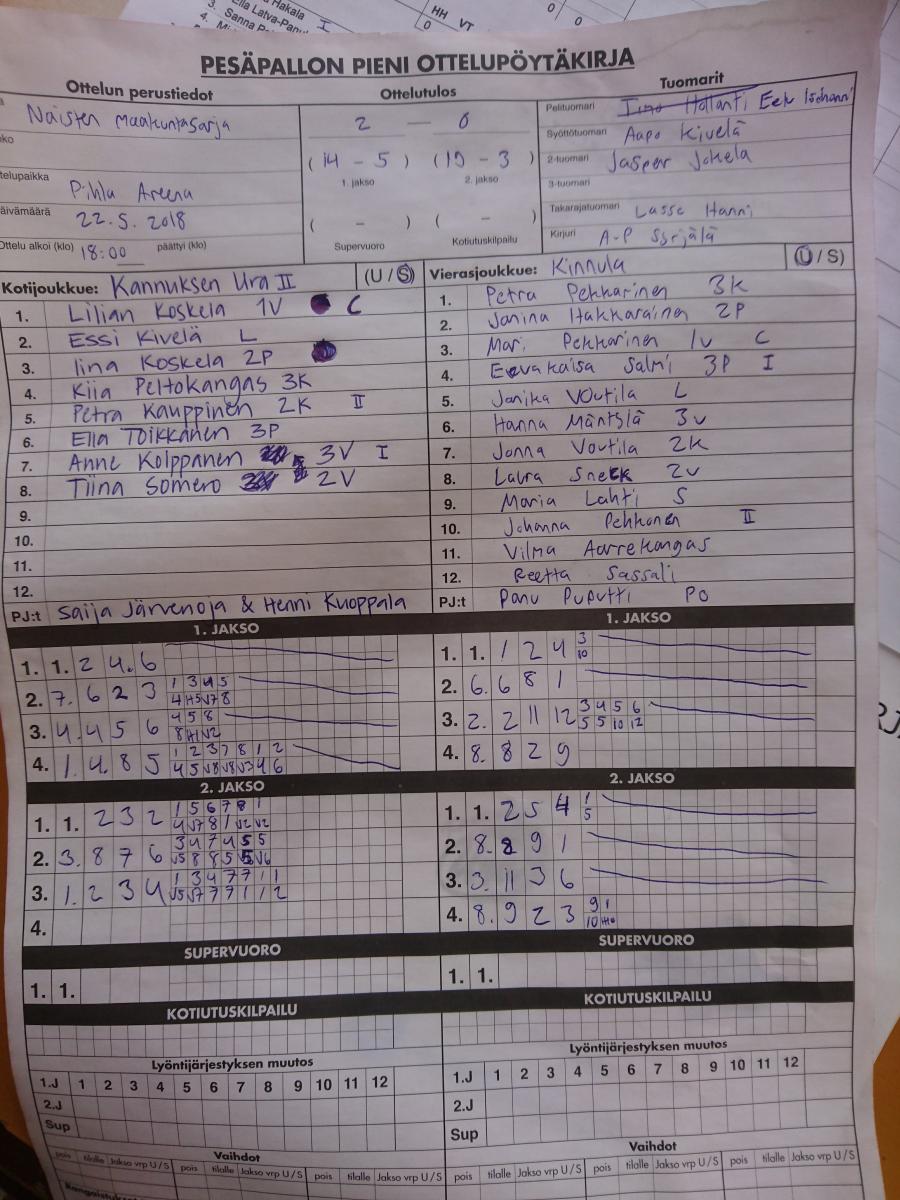 Hakala
3. Ella Latva-Panu
I
HH VT
4.
0
0 0
PESÄPALLON PIENI OTTELUPÖYTÄKIRJA
Ottelun perustiedot
Naisten maakuntasarja
Pihla Areena
22.5.2018
Ottelu alkoi (klo) 18:00 päättyi (klo)
Ottelutulos
2 - 0
(14 - 5) (15 - 3)
1. jakso 2. jakso
( - ) ( - )
Supervuoro Kotiutuskilpailu
Tuomarit
Pelituomari
Syöttötuomari Aapo Kivelä
2-tuomari Jasper Jokela
3-tuomari
Takarajatuomari Lasse Hanni
Kirjuri A-P Syrjälä
Kotijoukkue: Kannuksen Ura II (U / S)
1. Lilian Koskela 1V C
2. Essi Kivelä L
3. Iina Koskela 2P
4. Kiia Peltokangas 3K
5. Petra Kauppinen 2K II
6. Ella Toikkanen 3P
7. Anne Kolppanen 3V I
8. Tiina Somero 2V
9.
10.
11.
12.
PJ:t Saija Järvenoja & Henni Kuoppala
Vierasjoukkue: Kinnula (U / S)
1. Petra Pekkarinen 3K
2. Janina Hakkarainen 2P
3. Mari Pekkarinen 1V C
4. Eevakaisa Salmi 3P I
5. Janika Voutila L
6. Hanna Mäntylä 3V
7. Jonna Voutila 2K
8. Laura Sneck 2V
9. Maria Lahti S
10. Johanna Pekkonen II
11. Vilma Aarrekangas
12. Reetta Sassali
PJ:t Panu Puputti PO
1. JAKSO
1. 1. 2 4 6
2. 7. 6 2 3
3. 4. 4 5 6
4. 1. 4 8 5
2. JAKSO
1. 1. 2 3 2
2. 3. 8 7 6
3. 1. 2 3 4
4.
SUPERVUORO
1. 1.
KOTIUTUSKILPAILU
Lyöntijärjestyksen muutos
1.J 1 2 3 4 5 6 7 8 9 10 11 12
2.J
Sup
Vaihdot
pois tilalle Jakso vrp U / S pois tilalle Jakso vrp U / S pois tilalle Jakso vrp U / S
1. JAKSO
1. 1. 1 2 4 3 10
2. 6. 6 8 1
3. 2. 2 11 12 3 4 5 6
5 5 10 12
4. 8. 8 2 9
2. JAKSO
1. 1. 2 5 4 1 5
2. 8. 2 9 1
3. 3. 11 3 6
4. 8. 9 2 3 9 1
SUPERVUORO
1. 1.
KOTIUTUSKILPAILU
Lyöntijärjestyksen muutos
1.J 1 2 3 4 5 6 7 8 9 10 11 12
2.J
Sup
Vaihdot
pois tilalle Jakso vrp U / S pois tilalle Jakso vrp U / S pois tilalle Jakso vrp U / S